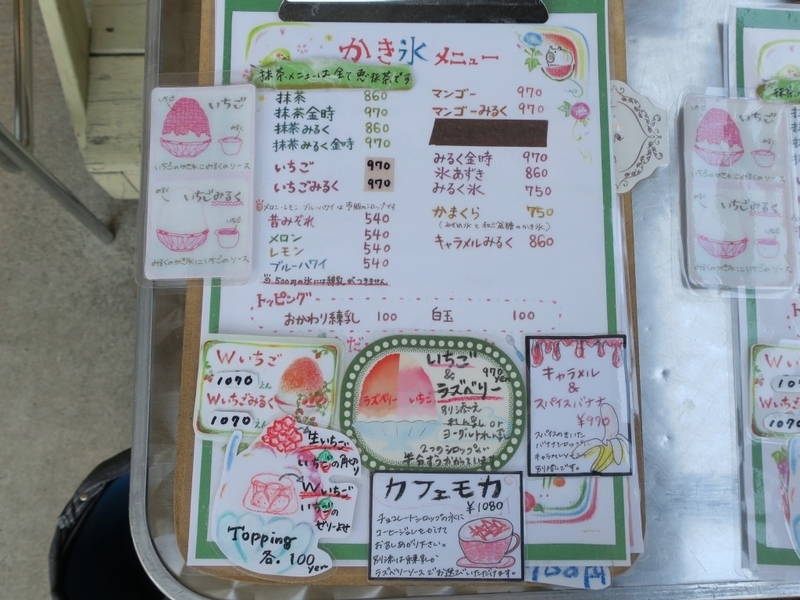 かき氷 メニュー
抹茶メニューは全て恵抹茶です
抹茶 860
抹茶金時 970
抹茶みるく 860
抹茶みるく金時 970
いちご 970
いちごみるく 970
メロン・レモン・ブルーハワイは市販のシロップです
昔みぞれ 540
メロン 540
レモン 540
ブルーハワイ 540
500円の氷には練乳がつきません
マンゴー 970
マンゴーみるく 970
みるく金時 970
氷あずき 860
みるく氷 750
かまくら 750
キャラメルみるく 860
トッピング
おかわり練乳 100 白玉 100
いちご
いちごのかき氷にみるくのソース
いちごみるく
みるくのかき氷にいちごのソース
Wいちご
1090
Wいちごみるく
1090
いちご
&
ラズベリー
970 yen
ラズベリー いちご
別添え
練乳 or
ヨーグルト
2つのシロップを
キャラメル
&
スパイスバナナ
¥970
スパイスのきいた
生いちご
いちごの角切り
Wいちご
いちごの
ゼリーよせ
Topping
各. 100 yen
カフェモカ
¥1080
チョコレートシロップの氷に
コーヒージュレをかけて
お召しあがりください。
別添は練乳か
ラズベリーソースでお選びいただけます。
100円
いちご
いちごみるく
Wいちご
1090
Wいちごみる
1090